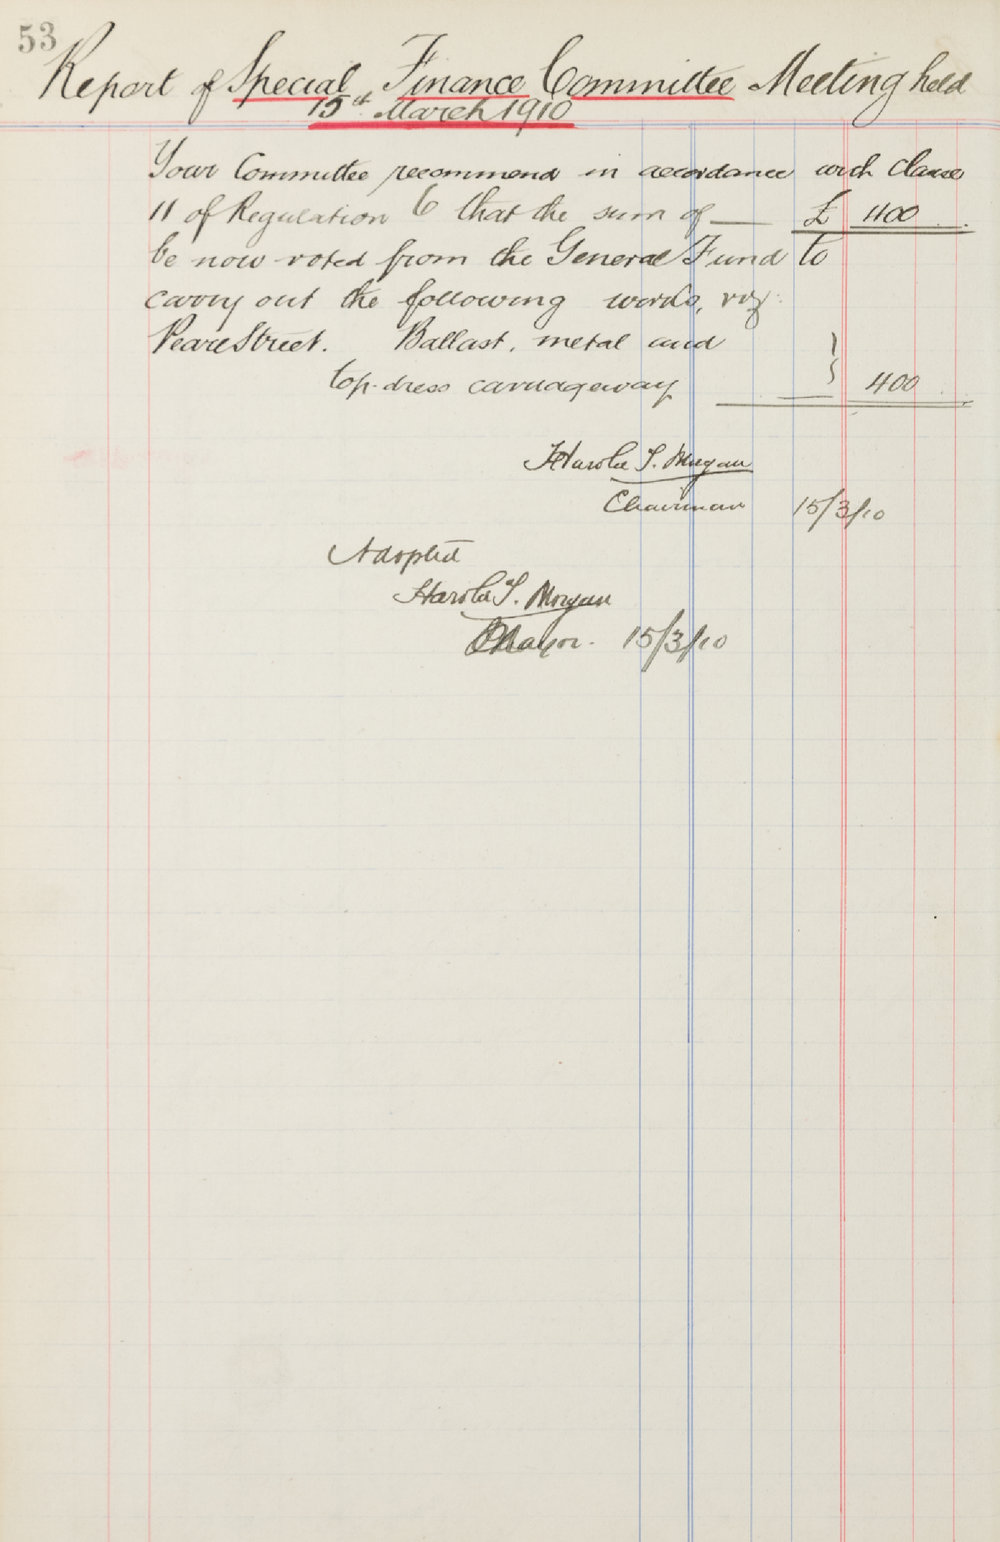 53
Report of Special Finance Committee Meeting held
15th March 1910
Your Committee recommend in accordance with Clause
11 of Regulation 6 that the sum of — £ 400
be now voted from the General Fund to
carry out the following works, viz:
Street. Ballast, metal and
top-dress carriageway 400
Harold T. Morgan
Chairman 15/3/10
Adopted
Harold T. Morgan
Mayor. 15/3/10